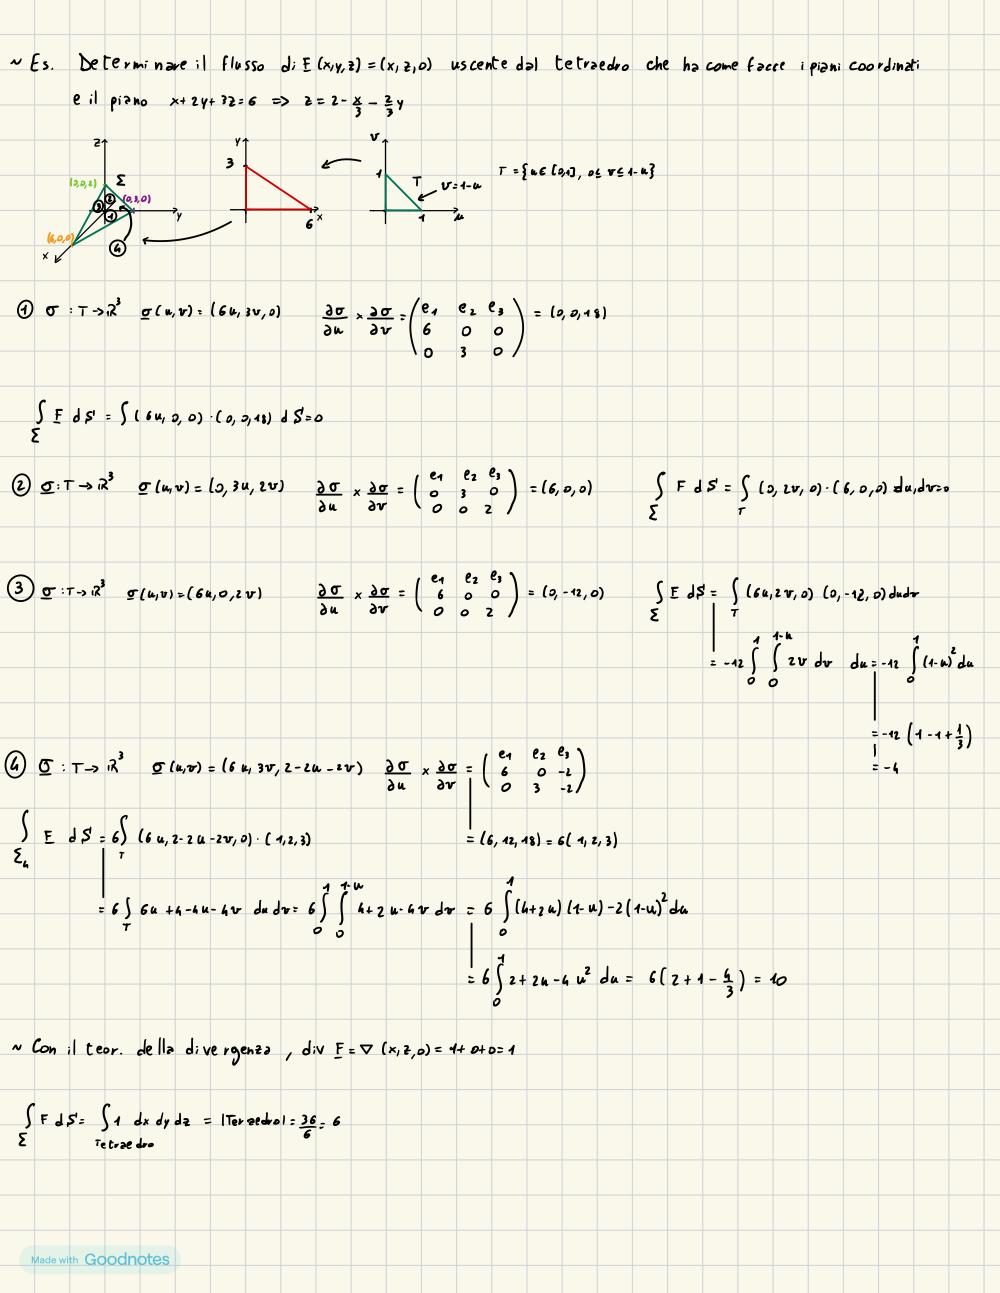 ~ Es. Determinare il flusso di F (x,y,z) = (x, z, 0) uscente dal tetraedro che ha come facce i piani coordinati
e il piano x+2y+3z=6 => z = 2 - x/3 - 2/3 y
z (0,0,2) Σ (0,3,0) y (6,0,0) x ① ② ③ ④
y 3 6 x
v 1 T v=1-u 1 u
T = {u ∈ [0,1], 0 ≤ v ≤ 1-u}
① σ : T → ℝ³ σ(u,v) = (6u, 3v, 0) ∂σ/∂u × ∂σ/∂v = (e1 e2 e3 / 6 0 0 / 0 3 0) = (0,0,18)
∫_Σ F dS = ∫ (6u, 0, 0) · (0, 0, 18) dS = 0
② σ : T → ℝ³ σ(u,v) = (0, 3u, 2v) ∂σ/∂u × ∂σ/∂v = (e1 e2 e3 / 0 3 0 / 0 0 2) = (6,0,0) ∫_Σ F dS = ∫_T (0, 2v, 0) · (6,0,0) du,dv=0
③ σ : T → ℝ³ σ(u,v) = (6u, 0, 2v) ∂σ/∂u × ∂σ/∂v = (e1 e2 e3 / 6 0 0 / 0 0 2) = (0,-12,0) ∫_Σ F dS = ∫_T (6u, 2v, 0) (0,-12,0) dudv
= -12 ∫_0^1 ∫_0^{1-u} 2v dv du = -12 ∫_0^1 (1-u)² du
= -12 (1 - 1 + 1/3)
= -4
④ σ : T → ℝ³ σ(u,v) = (6u, 3v, 2-2u-2v) ∂σ/∂u × ∂σ/∂v = (e1 e2 e3 / 6 0 -2 / 0 3 -2)
= (6,12,18) = 6(1,2,3)
∫_Σ4 F dS = 6∫_T (6u, 2-2u-2v, 0) · (1,2,3)
= 6 ∫_T 6u +4-4u-4v du dv = 6 ∫_0^1 ∫_0^{1-u} 4+2u-4v dv = 6 ∫_0^1 (4+2u)(1-u) - 2(1-u)² du
= 6 ∫_0^1 2+2u-4u² du = 6(2+1-4/3) = 10
~ Con il teor. della divergenza, div F = ∇ (x,z,0) = 1+0+0=1
∫_Σ F dS = ∫_Tetraedro 1 dx dy dz = |Tetraedro| = 36/6 = 6
Made with Goodnotes